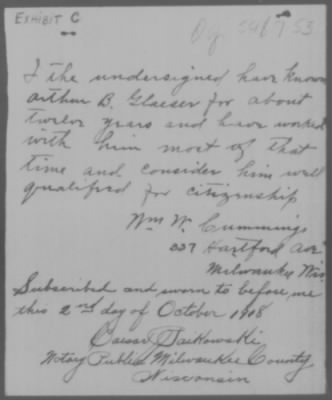 EXHIBIT C
I the undersigned have known
Arthur B. Glaeser for about
twelve years and have worked
with him most of that
time and consider him well
qualified for citizenship
Wm W. Cummings
Hartford Ave
Milwaukee Wis.
Subscribed and sworn to before me
this 2nd day of October 1918
Notary Public Milwaukee County
Wisconsin